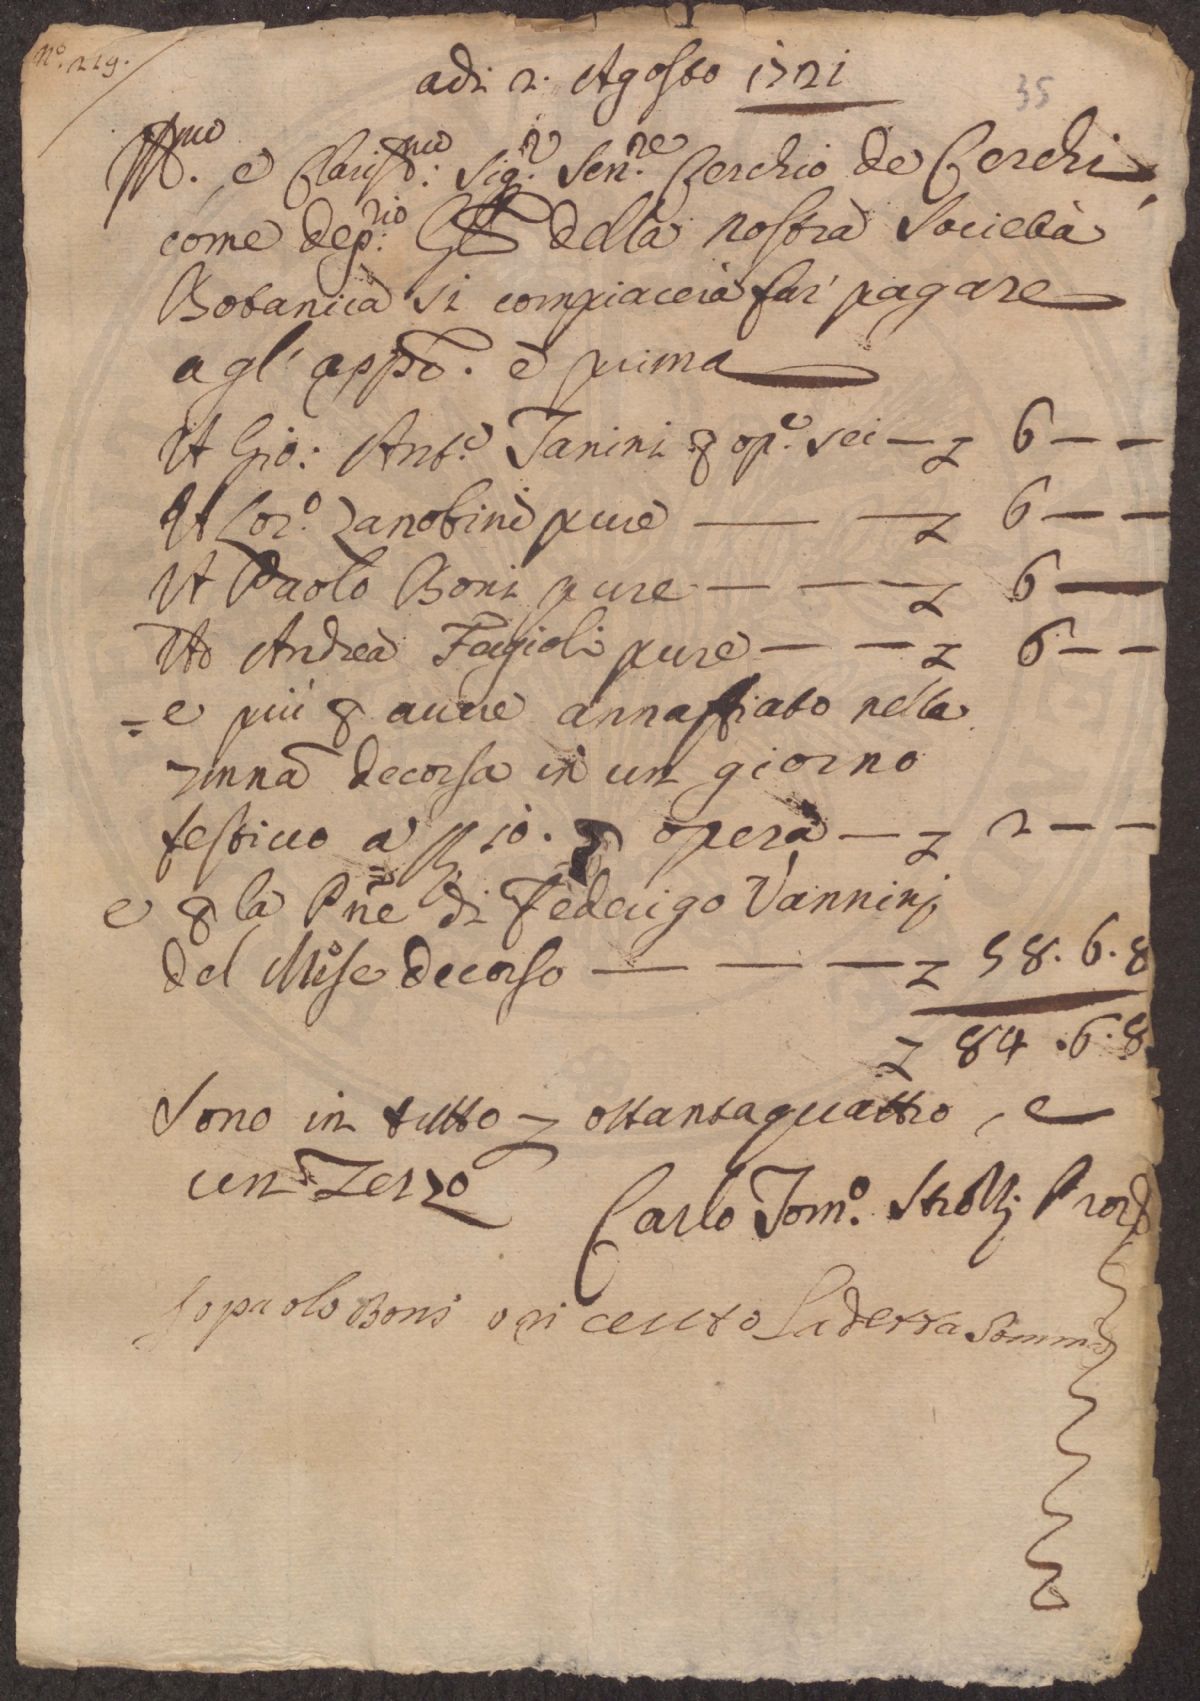 N.º 219.
adi 2. Agosto 1721
35
Ill.mo e Clariss.mo Sig.r Sen.re Cerchio de Cerchi
come dep.rio della nostra Società
Botanica si compiacerà far' pagare
agl' app.o e prima
A Gio: Ant.o Tanini p op.e sei — £ 6 — —
A Lor.o Zanobini pure — — £ 6 — —
A Paolo Boni pure — — £ 6 — —
Ad Andrea Fagioli pure — — £ 6 — —
= e più p avere annaffiato nella
7mna decorsa in un giorno
festivo a p 10. p opera — £ 2 — —
e p la Pne di Federigo Vannini
del Mese decorso — — — £ 58. 6. 8
£ 84. 6. 8
Sono in tutto £ ottantaquattro, e
un Terzo
Carlo Tom.o Strozzi
Io paolo Boni o ri ceuto la detta Somma